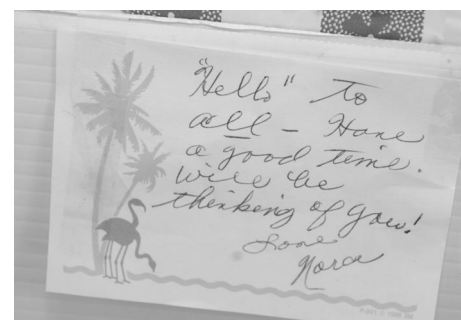 "Hello" to
all – Have
a good time.
Will be
thinking of you!
Love
Nora